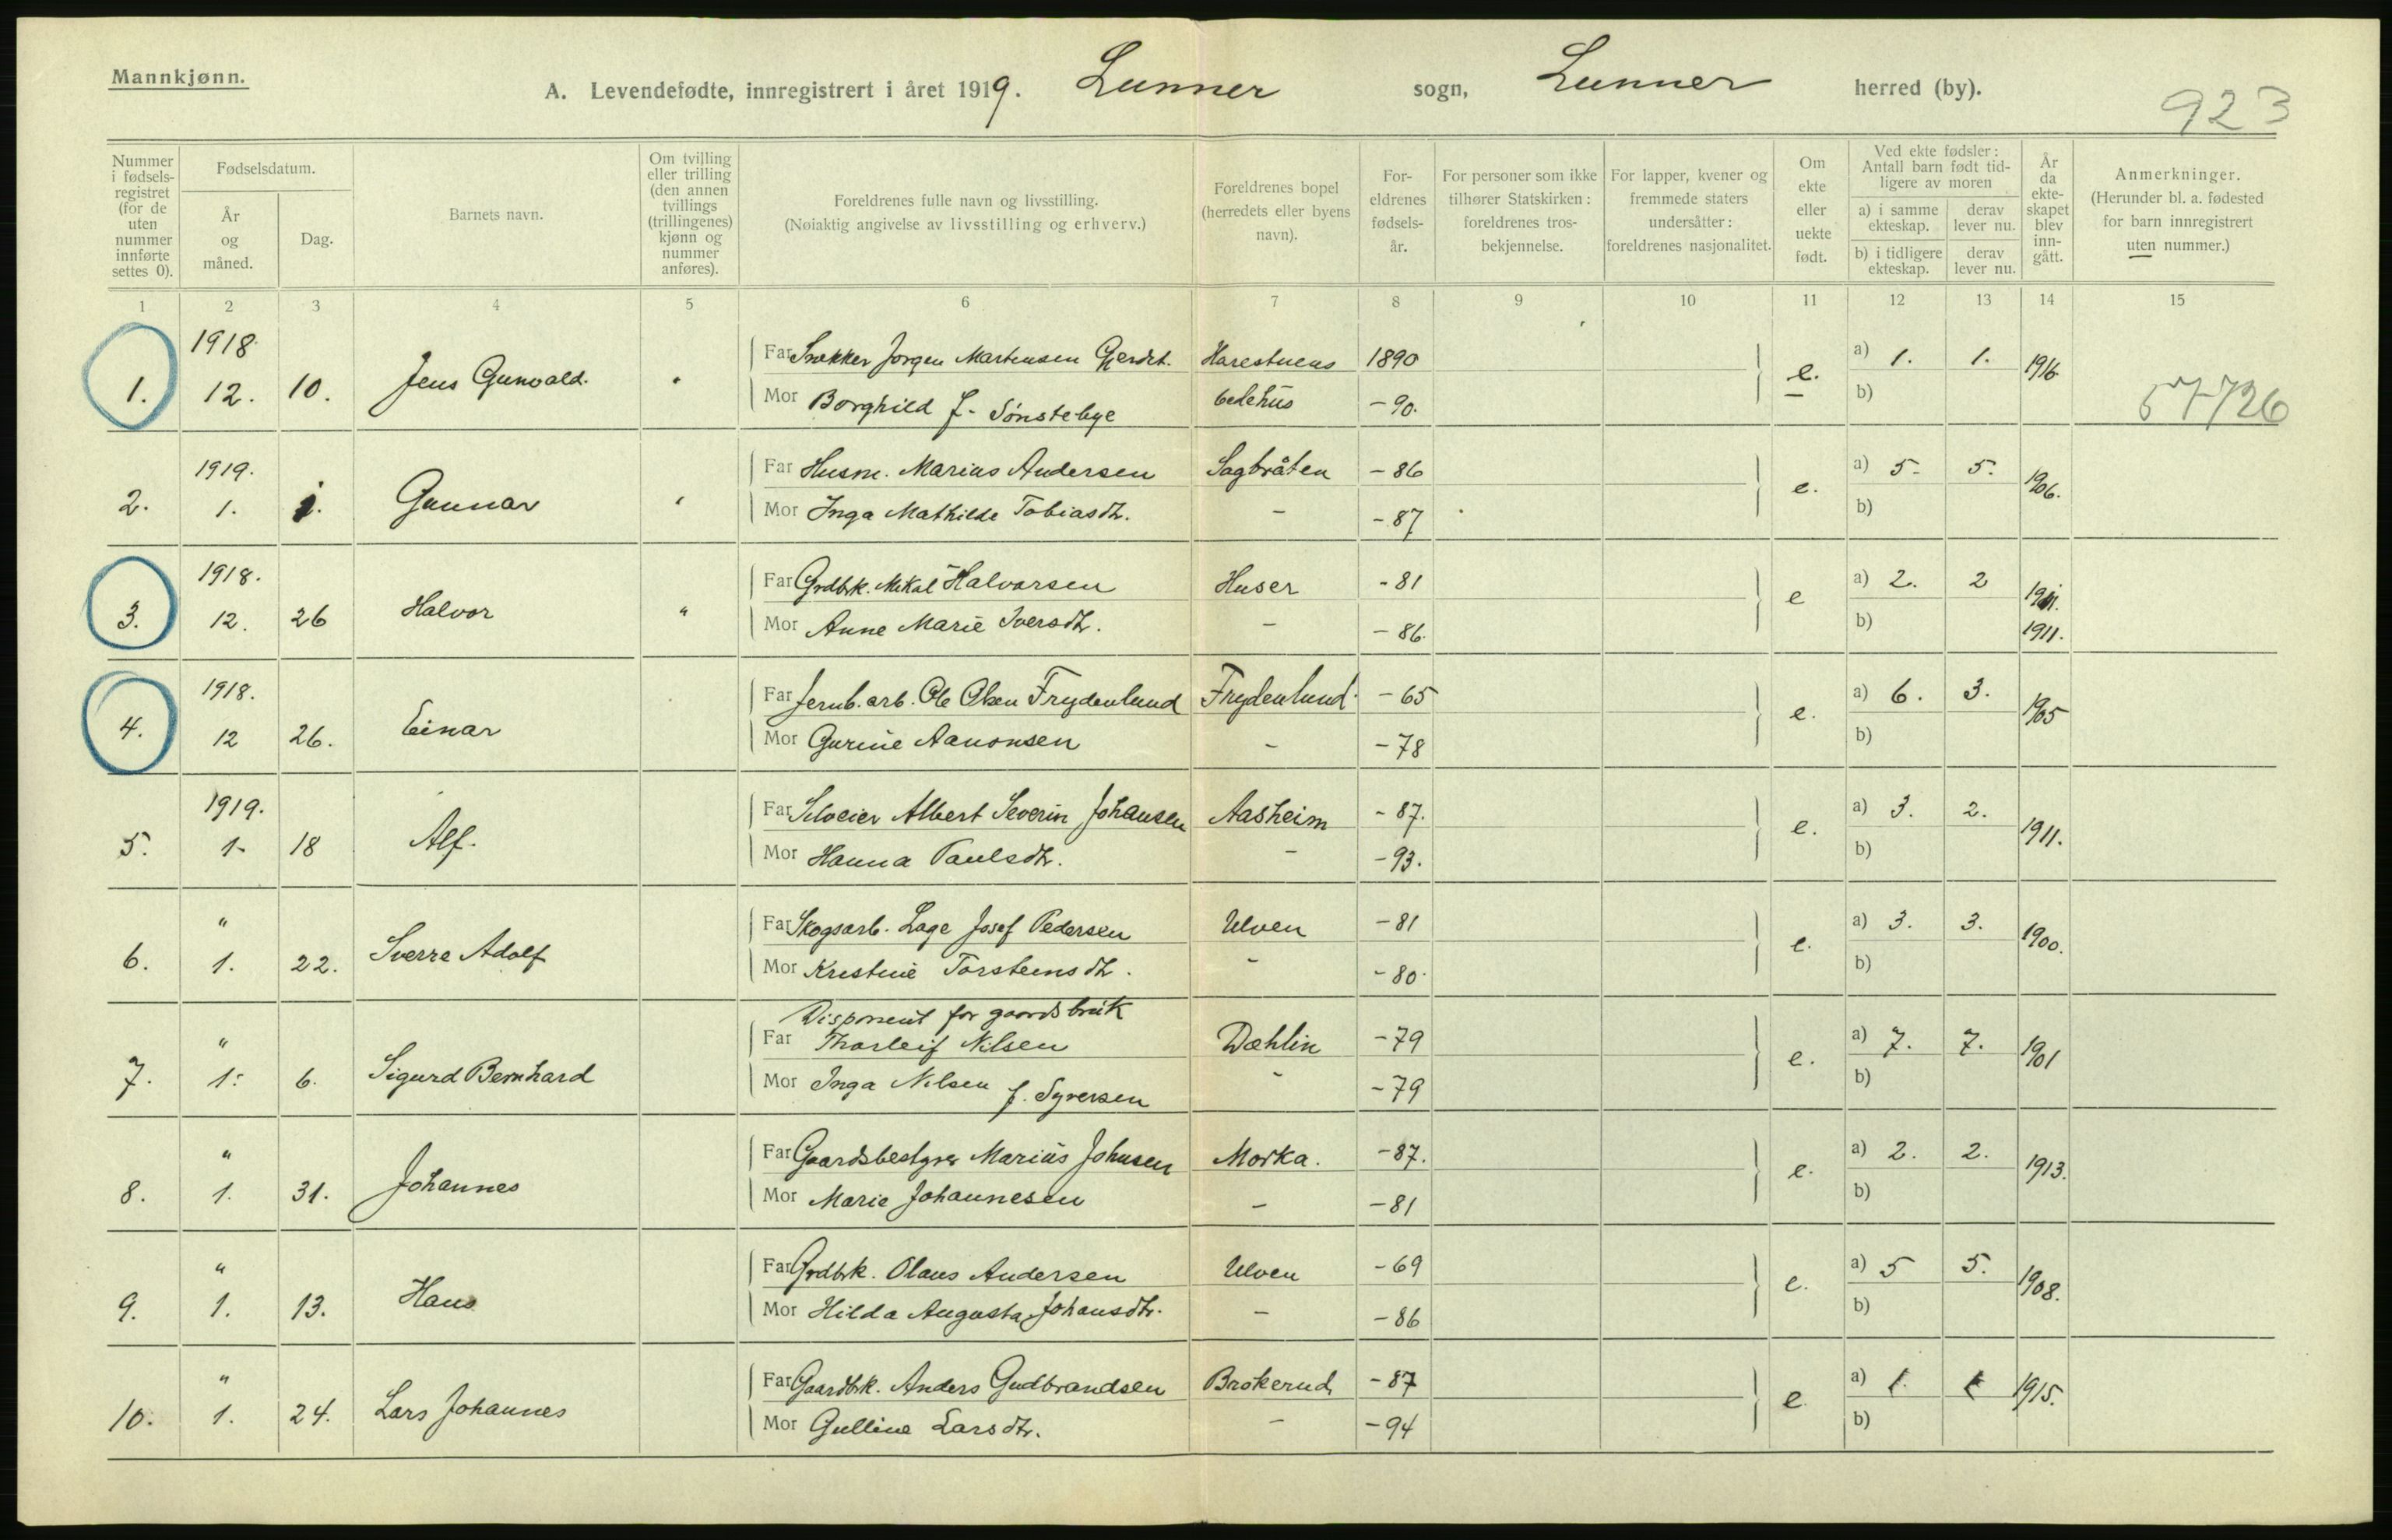 Mannkjønn.
A. Levendefødte, innregistrert i året 1919. Lunner sogn, Lunner herred (by).
923
Nummer i fødselsregistret (for de uten nummer innførte settes 0).
Fødselsdatum.
År og måned.
Dag.
Barnets navn.
Om tvilling eller trilling (den annen tvillings (trillingenes) kjønn og nummer anføres).
Foreldrenes fulle navn og livsstilling.
(Nøiaktig angivelse av livsstilling og erhverv.)
Foreldrenes bopel (herredets eller byens navn).
Foreldrenes fødselsår.
For personer som ikke tilhører Statskirken: foreldrenes trosbekjennelse.
For lapper, kvener og fremmede staters undersåtter: foreldrenes nasjonalitet.
Om ekte eller uekte født.
Ved ekte fødsler: Antall barn født tidligere av moren
a) i samme ekteskap. derav lever nu.
b) i tidligere ekteskap. derav lever nu.
År da ekteskapet blev inngått.
Anmerkninger.
(Herunder bl. a. fødested for barn innregistrert uten nummer.)
1 2 3 4 5 6 7 8 9 10 11 12 13 14 15
1918. Far Snekker Jørgen Martensen Gjerdet. Harestuens 1890 a) 1. 1. 1916
1. 12. 10. Jens Gunvald. Mor Borghild f. Sønstebye bedehus -90. e. b)
57726
1919. Far Husm. Marius Andersen Sagbråten -86 a) 5- 5. 1906.
2. 1. 1. Gunnar Mor Inga Mathilde Tobiasdtr. - -87 e. b)
1918. Far Grdbrk. Mikal Halvorsen Huser -81 a) 2. 2
3. 12. 26 Halvor " Mor Anne Marie Iversdtr. - -86. e b) 1911.
1918. Far Jernb.arb. Ole Olsen Frydenlund Frydenlund -65 a) 6. 3. 1905
4. 12 26. Einar Mor Gurine Aanonsen - -78 e. b)
1919. Far Albert Severin Johansen Aasheim -87. a) 3. 2. 1911.
5. 1- 18 Alf. Mor Hanna Paulsdtr. - -93. e. b)
" Far Skogsarb. Lage Josef Pedersen Ulven -81 a) 3. 3. 1900.
6. 1. 22. Sverre Adolf Mor Kristine Torsteinsdtr. - -80. e. b)
Disponent for gaardsbruk
" Far Thorleif Nilsen Dæhlin -79 a) 7. 7. 1901
7. 1. 6. Sigurd Bernhard Mor Inga Nilsen f. Syversen - -79 e. b)
" Far Gaardsbestyrer Marius Johnsen Morka. -87. a) 2. 2. 1913.
8. 1. 31. Johannes Mor Marie Johannesen - -81 e. b)
" Far Grdbrk. Olaus Andersen Ulven -69 a) 5 5. 1908.
9. 1. 13. Hans Mor Hilda Augusta Johansdtr. - -86 e. b)
" Far Gaardbrk. Anders Gudbrandsen Brokerud -87 a) 1. 1 1915.
10. 1. 24. Lars Johannes Mor Gulline Larsdtr. - -94 e b)